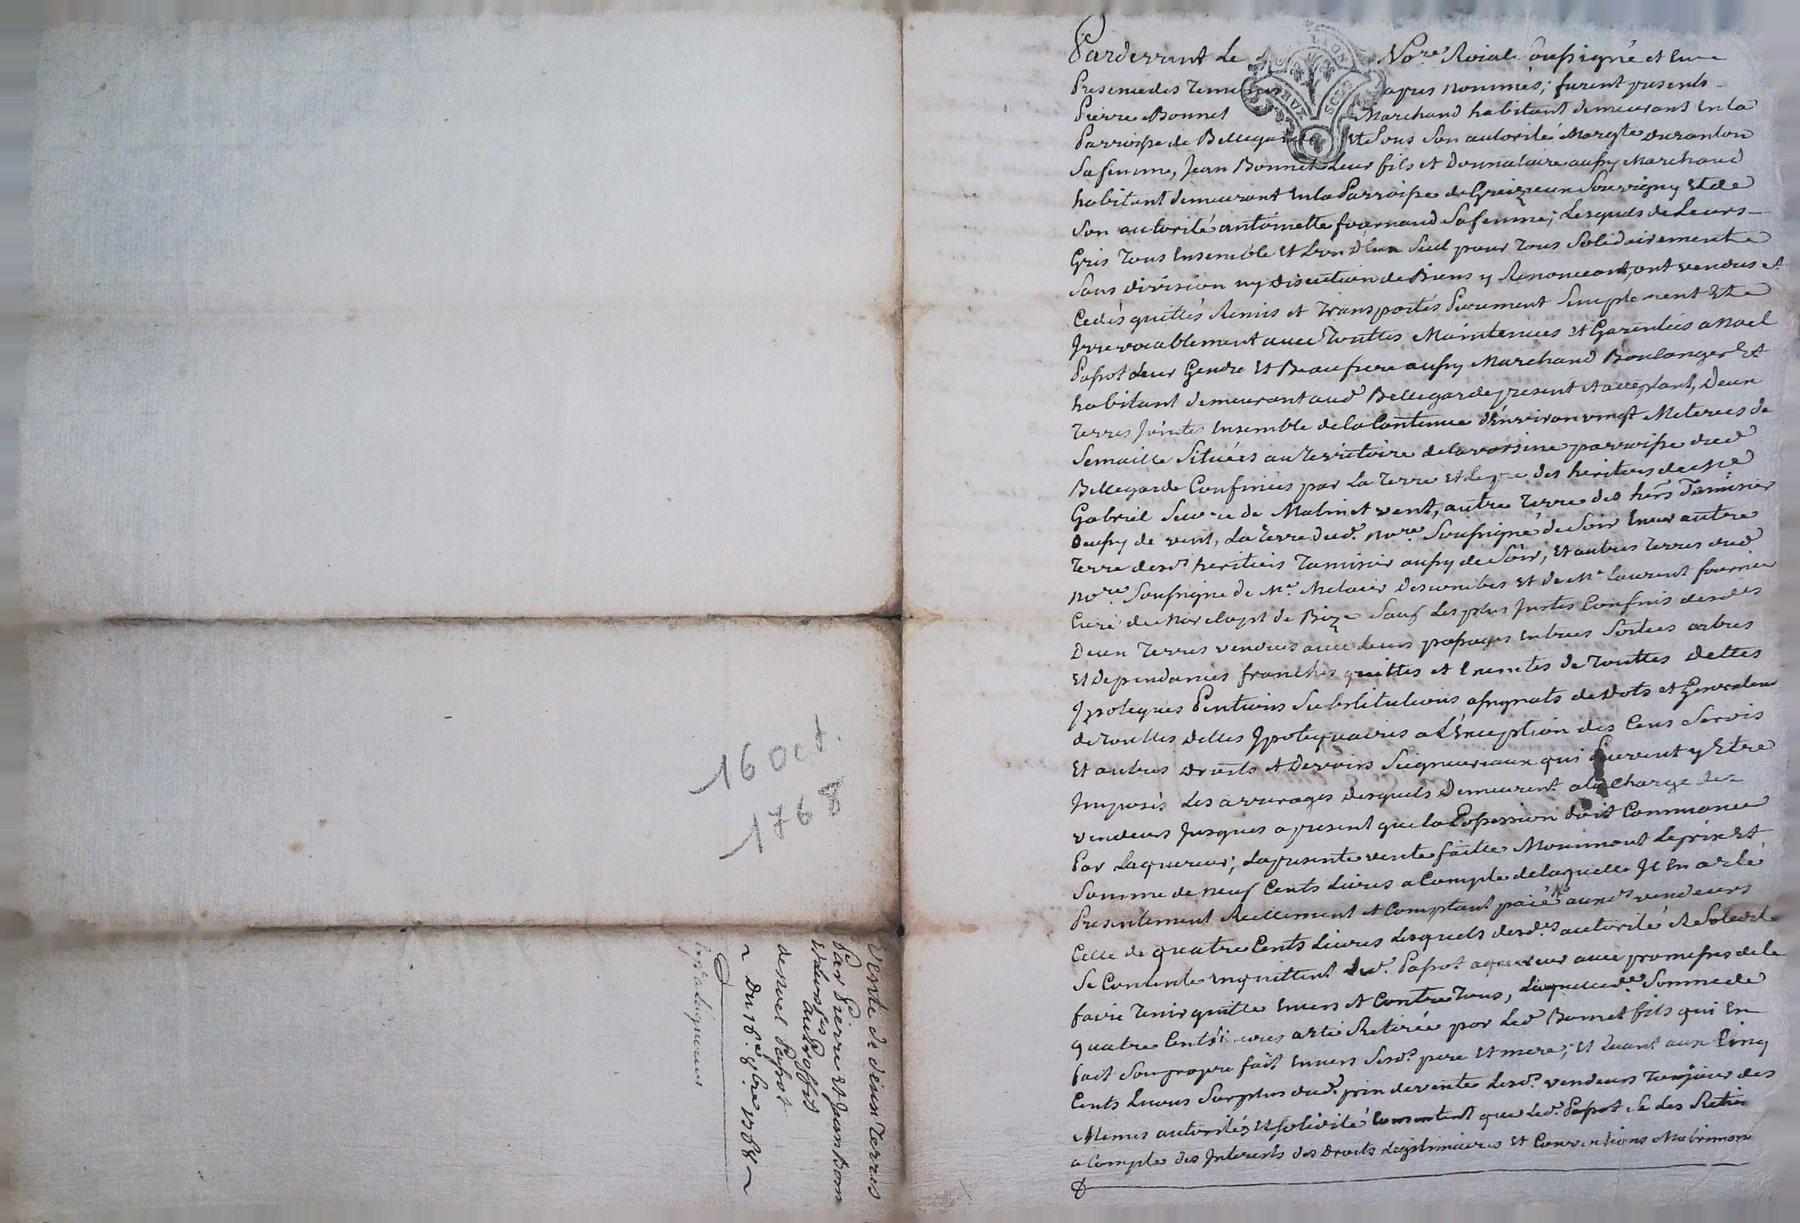 Pardevant Le Nore. Roial soussigné et En
Presence des Temoins apres nommés; furent presents
Pierre Bonnet Marchand habitant demeurant En la
Parroisse de Bellegarde Et Sous Son autorité Margte duranton
Sa femme, Jean Bonnet Leur fils et Donnataire aussy Marchand
habitant demeurant En la Parroisse de Grezieux Souvigny Et de
Son autorité antoinette fournand Sa femme; Lesquels de Leurs
Grés Tous Ensemble Et L'un d'Eux Seul pour Tous Solidairement
Sans division ny discution de Biens y Renonceant, ont vendus et
Cedés quittés Remis et Transportés Purement Simplement Et
Irrevocablement avec Touttes Maintenues et Garenties a Noel
Passot Leur Gendre Et Beaufrere aussy Marchand Boulanger Et
habitant demeurant aud. Bellegarde present et acceptant, Deux
Terres Jointes Ensemble de la Contenue d'Environ vingt Meterees de
Semaille Situées au Territoire de la varsine parroisse dud.
Bellegarde Confinées par La Terre et des heritiers de Me
Gabriel de Matin et vent, autre Terre des hers Taminier
aussy de vent, La Terre dud. Nore. Soussigné de Soir Encor autre
Terre desd. heritiers Taminier aussy de Soir, Et autres Terres dud.
Nore. Soussigné de Me. Descombes Et de Me Laurent fournier
Curé de de Bize Sauf Les plus Justes Confins desdes
Deux Terres vendues avec Leurs passages Entrées Sorties arbres
Et Dependances franches quittes et Exemtes de Touttes Dettes
Ypoteques Pentions Substitutions assignats de Dots et Generalem
de Touttes Dettes Ypotequaires a L'Exception des Cens Servis
Et autres Droits et Devoirs Seigneuriaux qui Peuvent y Etre
Imposés Les arrerages desquels Demeurent a la Charge des
vendeurs Jusques a present que la Possession doit Commancer
Par L'aquereur; La presente vente faitte Moiennant Le prix Et
Somme de Neuf Cents Livres a Compte de laquelle Il En a eté
Presentement Reellement et Comptant paié auxds vendeurs
Celle de quatre Cents Livres Lesquels desds autorité et Solidité
Se Contente En quittent Led. Passot aquereur avec promesses de le
faire Tenir quitte Envers et Contre Tous, Laquelle de Somme de
quatre Cents Livres a eté Retirée par Led. Bonnet fils qui En
fait Son propre fait Envers Sesd. pere Et mere; Et Quant aux Cinq
Cents Livres Surplus dud. prix de vente Lesd. vendeurs Toujours des
Memes autorités Et Solidité Consentent que Led. Passot Se Les Retien
a Compte des Interests des Droits Legitimaires Et Conventions Matrimoni
16 Oct.
1768
vente de deux Terres
Par Pierre Et Jean Bonn
Et Leurs fes au Proffit
de Noel Passot
Du 16e. 8bre 1768